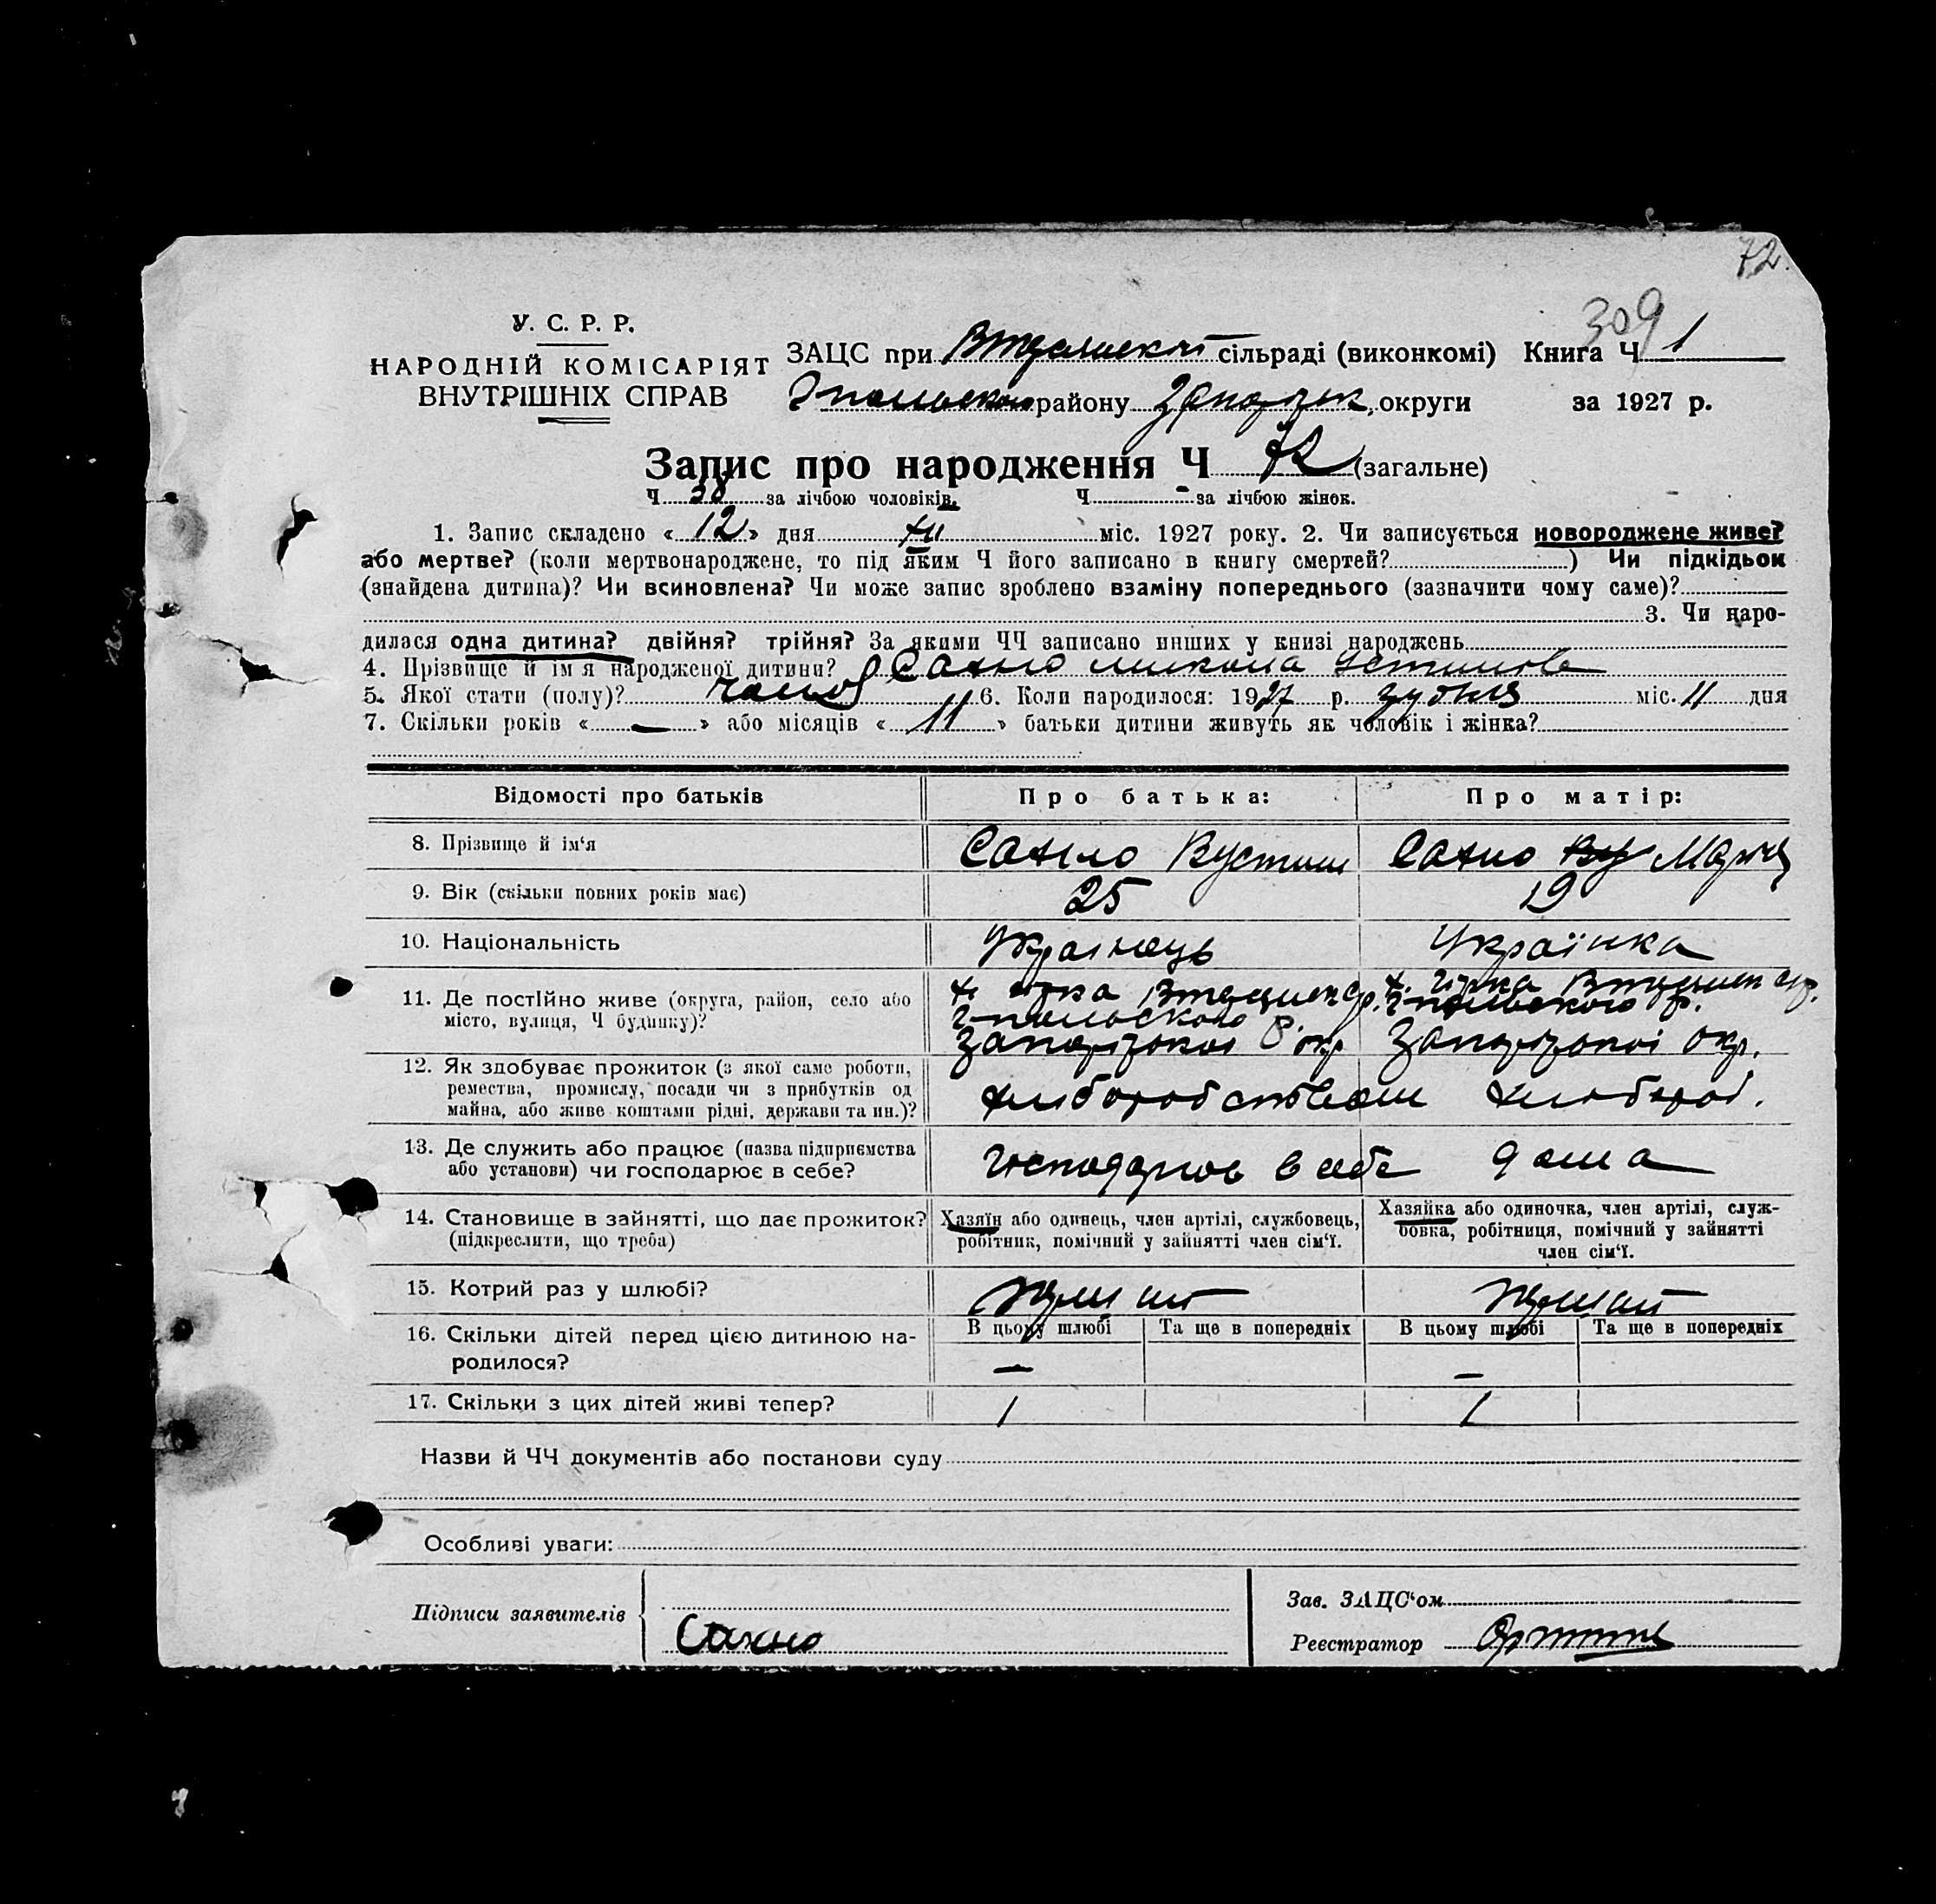 72.
309
У. С. Р. Р.
НАРОДНІЙ КОМІСАРІЯТ
ВНУТРІШНІХ СПРАВ
ЗАЦС при сільраді (виконкомі) Книга Ч 1
району округи за 1927 р.
Запис про народження Ч 72 (загальне)
Ч 38 за лічбою чоловіків. Ч - за лічбою жінок.
1. Запис складено « 12 » дня міс. 1927 року. 2. Чи записується новороджене живе?
або мертве? (коли мертвонароджене, то під яким Ч його записано в книгу смертей? ) Чи підкідьок
(знайдена дитина)? Чи всиновлена? Чи може запис зроблено взаміну попереднього (зазначити чому саме)?
3. Чи наро-
дилася одна дитина? двійня? трійня? За якими ЧЧ записано инших у книзі народжень
4. Прізвище й ім'я народженої дитини? Сахно Микола Устимов
5. Якої стати (полу)? чолов 6. Коли народилося: 1927 р. грудня міс. 11 дня
7. Скільки років « — » або місяців « 11 » батьки дитини живуть як чоловік і жінка?
Відомості про батьків Про батька: Про матір:
8. Прізвище й ім'я Сахно Вустим Сахно Марія
9. Вік (скільки повних років має) 25 19
10. Національність Українець Українка
11. Де постійно живе (округа, район, село або
місто, вулиця, Ч будинку)?
Запорізької окр Запорізької окр.
12. Як здобуває прожиток (з якої саме роботи,
ремества, промислу, посади чи з прибутків од
майна, або живе коштами рідні, держави та ин.)?
хліборобством хлібороб.
13. Де служить або працює (назва підприємства
або установи) чи господарює в себе?
господарює в себе дома
14. Становище в зайнятті, що дає прожиток?
(підкреслити, що треба)
Хазяїн або одинець, член артілі, службовець,
робітник, помічний у зайнятті член сім'ї.
Хазяйка або одиночка, член артілі, служ-
бовка, робітниця, помічний у зайнятті
член сім'ї.
15. Котрий раз у шлюбі?
16. Скільки дітей перед цією дитиною на-
родилося?
В цьому шлюбі Та ще в попередніх В цьому шлюбі Та ще в попередніх
— —
17. Скільки з цих дітей живі тепер? 1 1
Назви й ЧЧ документів або постанови суду
Особливі уваги:
Підписи заявителів
Сахно
Зав. ЗАЦС'ом
Реєстратор